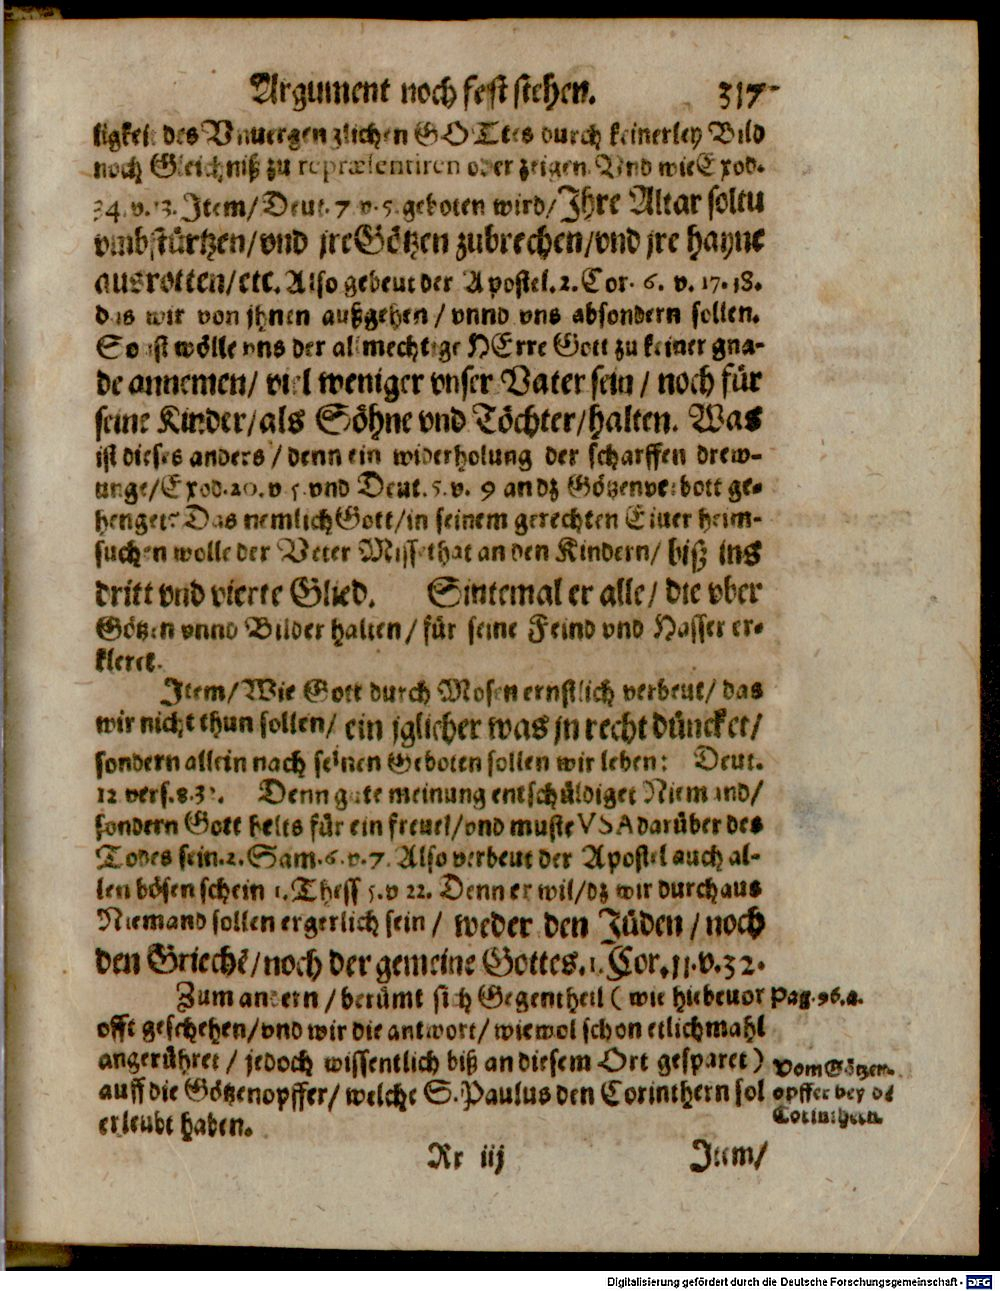 Argument noch fest stehen. 317
ligkeit des Vnuergenzlichen GOTtes durch keinerley Bild
noch Gleichniß zu repræsentiren oder zeigen. Vnd wie Exod.
34. v. 13. Item/ Deut. 7 v. 5. geboten wird/ Ihre Altar soltu
vmbstürtzen/ vnd jre Götzen zubrechen/ vnd jre hayne
ausrotten/ etc. Also gebeut der Apostel. 2. Cor. 6. v. 17. 18.
das wir von jhnen außgehen/ vnnd vns absondern sollen.
So ist wölle vns der allmechtige HErre Gott zu keiner gna-
de annemen/ viel weniger vnser Vater sein/ noch für
seine Kinder/ als Söhne vnd Töchter/ halten. Was
ist dieses anders/ denn ein widerholung der scharffen drew-
unge/ Exod. 20. v 5. vnd Deut. 5. v. 9 an dz Götzenverbott ge-
henget: Das nemlich Gott/ in seinem gerechten Eiuer heim-
suchen wolle der Veter Missethat an den Kindern/ biß ins
dritt vnd vierte Glied. Sintemal er alle/ die vber
Götzen vnnd Bilder halten/ für seine Feind vnd Hasser er-
kleret.
Item/ Wie Gott durch Mosen ernstlich verbeut/ das
wir nicht thun sollen/ ein jglicher was jn recht düncket/
sondern allein nach seinen Geboten sollen wir leben: Deut.
12 vers. 8. 32. Denn gute meinung entschüldiget Niemand/
sondern Gott helts für ein freuel/ vnd muste VSA darüber des
Todes sein. 2. Sam. 6. v. 7. Also verbeut der Apostel auch al-
len bösen schein 1. Thess 5. v 22. Denn er wil/ dz wir durchaus
Niemand sollen ergerlich sein/ weder den Jüden/ noch
den Griechē/ noch der gemeine Gottes. 1. Cor. 11. v. 32.
Zum andern/ berümt sich Gegentheil (wie hiebeuor
offt geschehen/ vnd wir die antwort/ wiewol schon etlichmahl
angerühret/ jedoch wissentlich biß an diesem Ort gesparet)
auff die Götzenopffer/ welche S. Paulus den Corinthern sol
erleubt haben.
Pag. 96. a.
Vom Götzen-
opffer bey dē
Corinthern.
Rr iij Item/
Digitalisierung gefördert durch die Deutsche Forschungsgemeinschaft - DFG